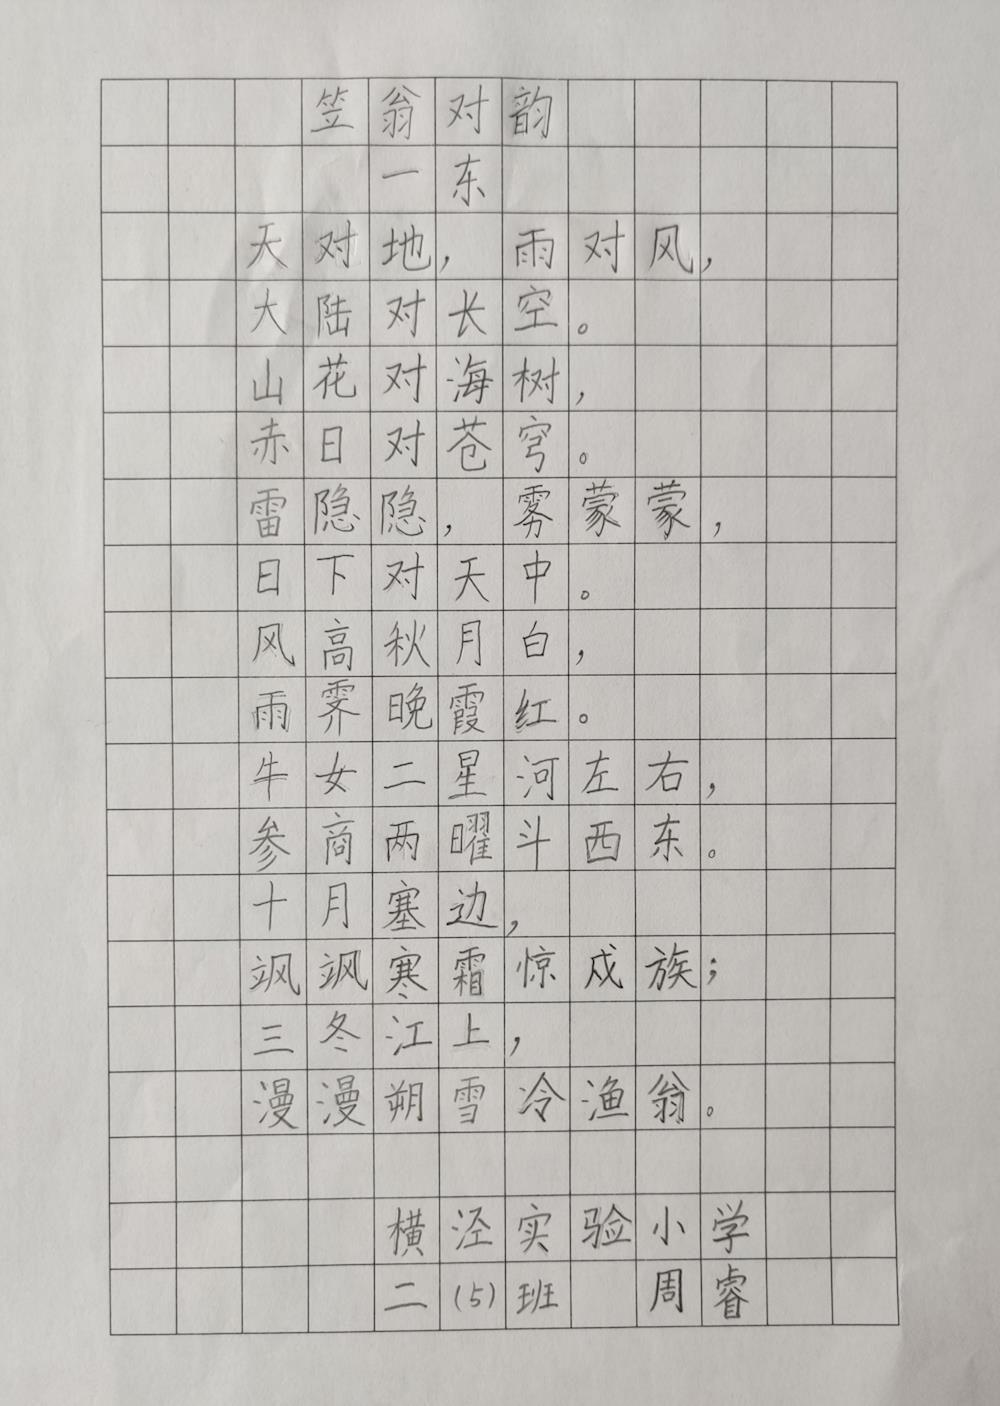 笠翁对韵
一东
天对地，雨对风，
大陆对长空。
山花对海树，
赤日对苍穹。
雷隐隐，雾蒙蒙，
日下对天中。
风高秋月白，
雨霁晚霞红。
牛女二星河左右，
参商两曜斗西东。
十月塞边，
飒飒寒霜惊戍族；
三冬江上，
漫漫朔雪冷渔翁。
横泾实验小学
二（5）班 周睿